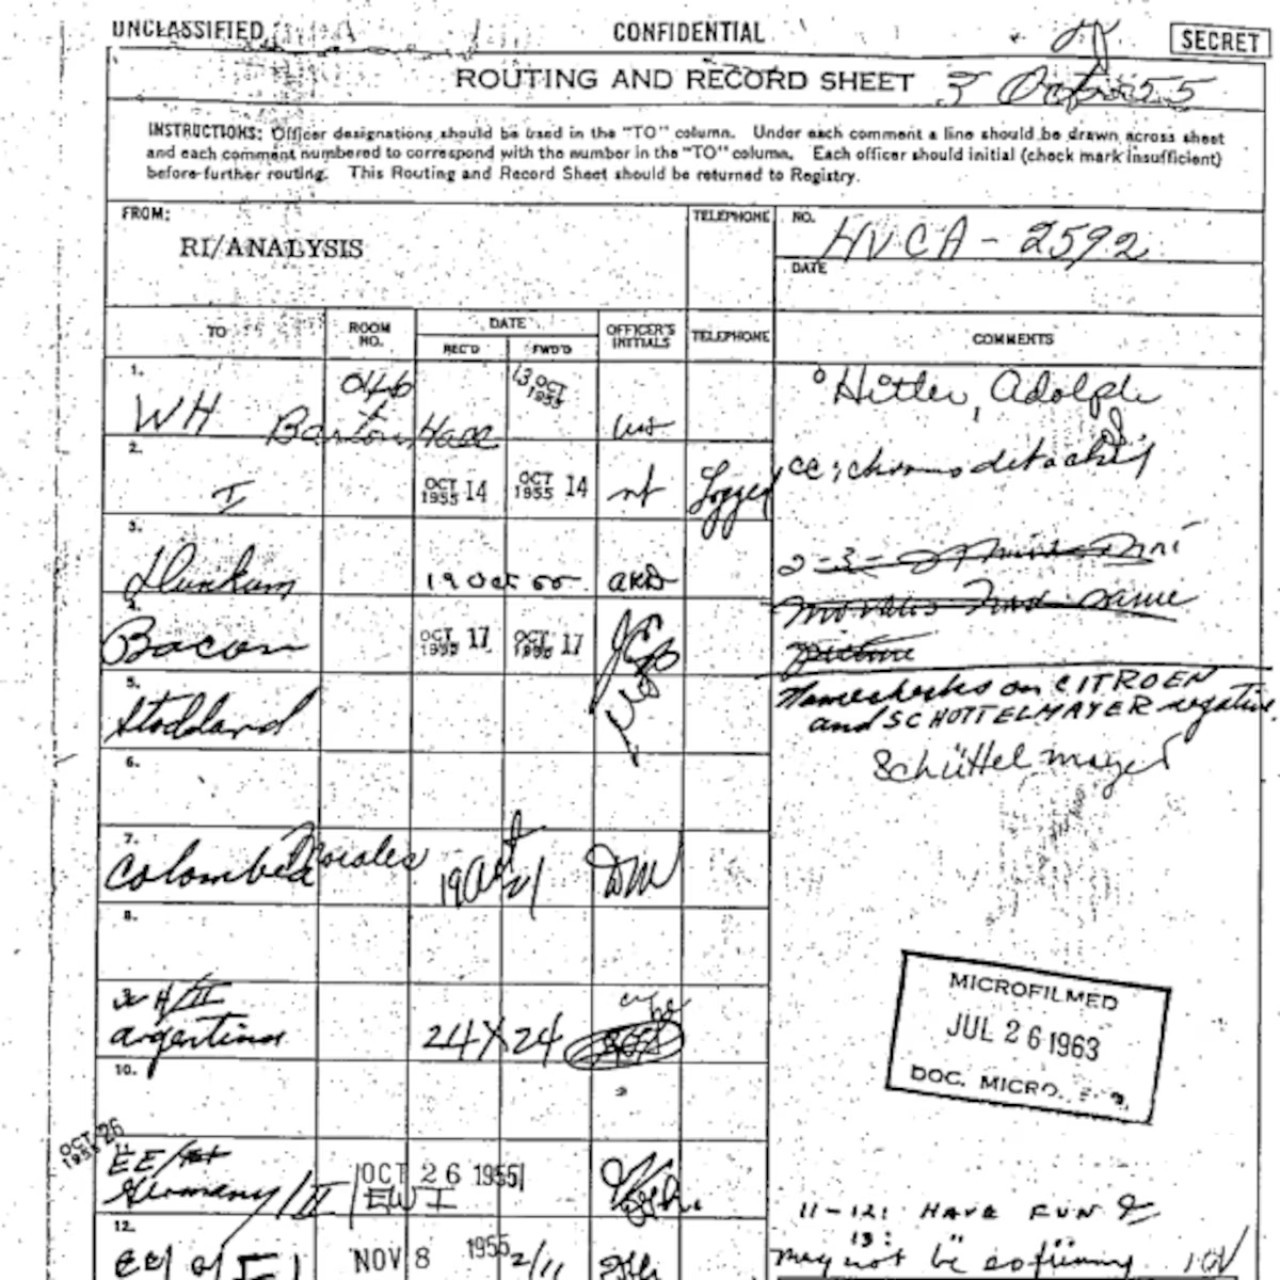 UNCLASSIFIED CONFIDENTIAL SECRET
ROUTING AND RECORD SHEET 3 Oct 55
INSTRUCTIONS: Officer designations should be used in the "TO" column. Under each comment a line should be drawn across sheet
and each comment numbered to correspond with the number in the "TO" column. Each officer should initial (check mark insufficient)
before further routing. This Routing and Record Sheet should be returned to Registry.
FROM:
RI/ANALYSIS
TELEPHONE
NO.
HVCA - 2592
DATE
TO
ROOM NO.
DATE
REC'D FWD'D
OFFICER'S INITIALS
TELEPHONE
COMMENTS
1.
WH Barton Hall
13 OCT 1955
Hitler, Adolph
2.
I
OCT 1955 14
OCT 1955 14
Logged
cc; chrono
3.
19 Oct 55
AKD
4.
Bacon
OCT 1955 17
OCT 1955 17
Namechecks on CITROEN
and SCHOTTELMAYER negative.
Schüttelmayer
5.
Stoddard
6.
7.
Colombia
19 Oct
DM
8.
III
Argentina
24 X 24
10.
MICROFILMED
JUL 26 1963
DOC. MICRO.
OCT 26
1955
11
EE/
Germany/II
OCT 26 1955
EWI
11-12: HAVE FUN
12.
NOV 8 1955
2/11
13:
may not be so funny